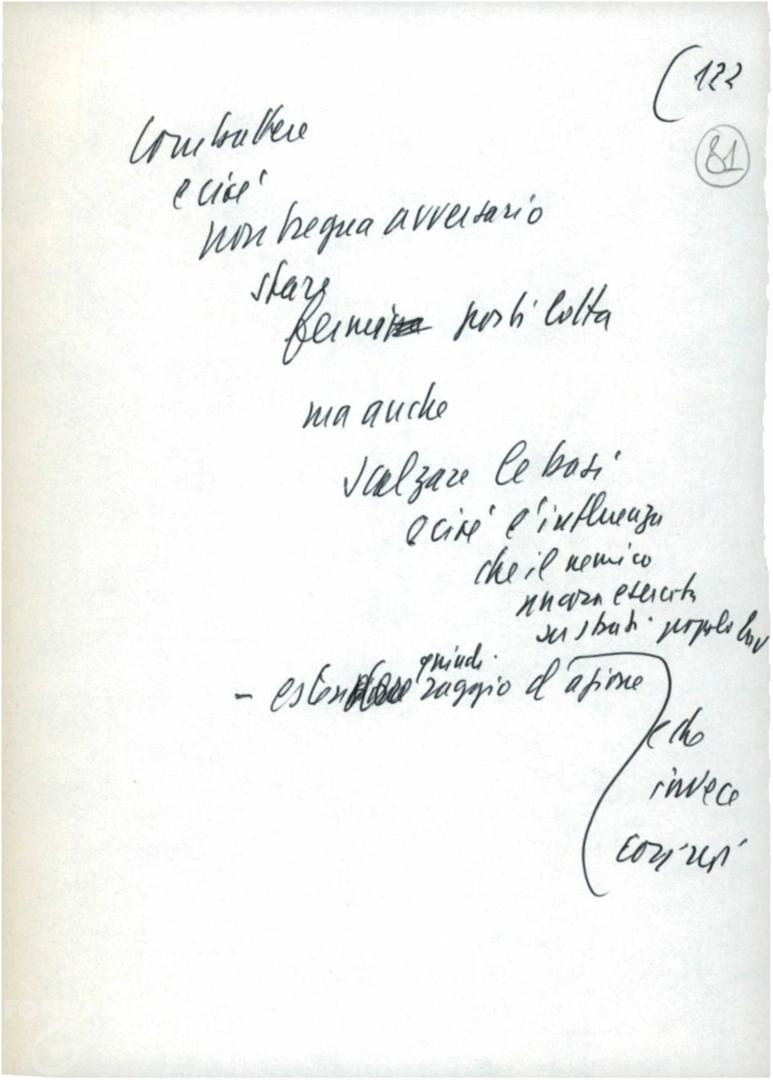 (122
81
Combattere
e cioè
non tregua avversario
stare
fermi posti lotta
ma anche
scalzare le basi
e cioè l'influenza
che il nemico
ancora esercita
su strati popolo lav
quindi
- estendere raggio d'azione
e che
invece